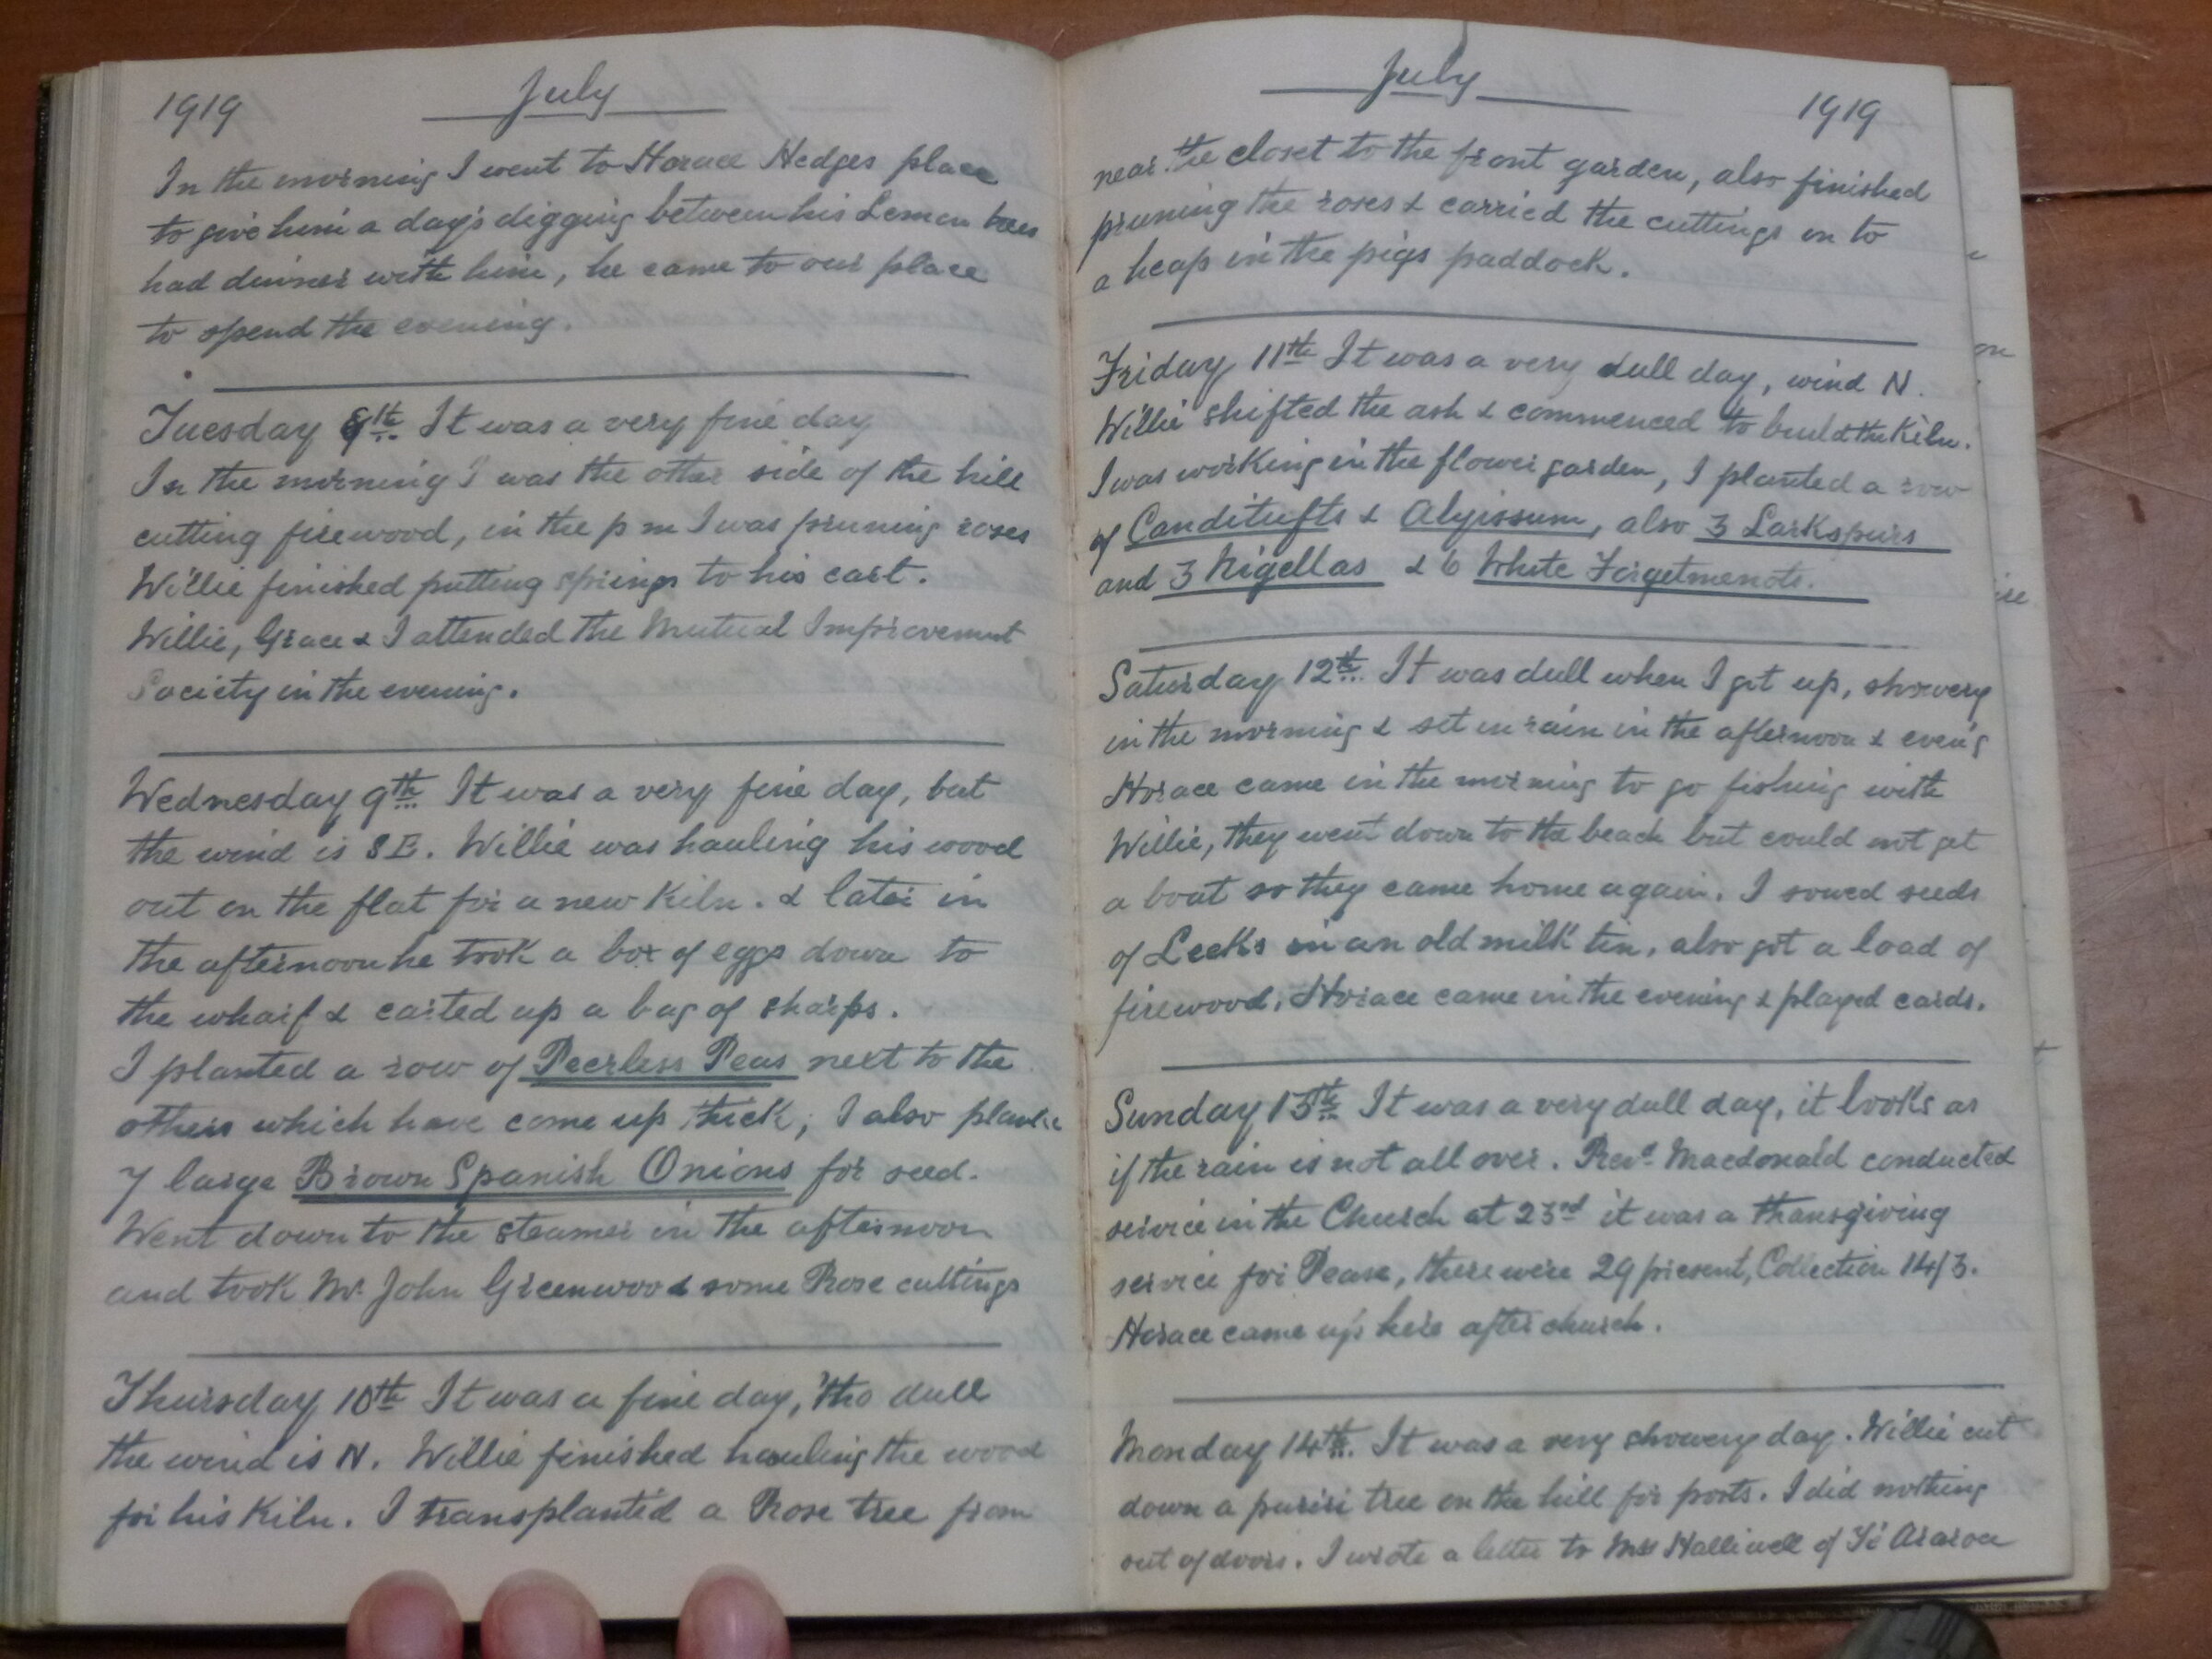 1919 July
In the morning I went to Horace Hedges place
to give him a day's digging between his Lemon trees
had dinner with him, he came to our place
to spend the evening.
Tuesday 8th It was a very fine day
In the morning I was the other side of the hill
cutting firewood, in the p m I was pruning roses
Willie finished putting springs to his cart.
Willie, Grace & I attended the Mutual Improvement
Society in the evening.
Wednesday 9th It was a very fine day, but
the wind is SE. Willie was hauling his wood
out on the flat for a new Kiln. & later in
the afternoon he took a box of eggs down to
the wharf & carted up a bag of sharps.
I planted a row of Peerless Peas next to the
others which have come up thick, I also plante
7 large Brown Spanish Onions for seed.
Went down to the steamer in the afternoon
and took Mr. John Greenwood some Rose cuttings
Thursday 10th It was a fine day, 'tho dull
the wind is N. Willie finished hauling the wood
for his Kiln. I transplanted a Rose tree from
July 1919
near the closet to the front garden, also finished
pruning the roses & carried the cuttings on to
a heap in the pigs paddock.
Friday 11th It was a very dull day, wind N.
Willie shifted the ash & commenced to build the Kiln.
I was working in the flower garden, I planted a row
of Canditufts & Alyissum, also 3 Larkspurs
and 3 Nigellas & 6 White Forgetmenots.
Saturday 12th. It was dull when I got up, showery
in the morning & set in rain in the afternoon & even'g
Horace came in the morning to go fishing with
Willie, they went down to the beach but could not get
a boat so they came home again. I sowed seeds
of Leeks in an old milk tin, also got a load of
firewood. Horace came in the evening & played cards.
Sunday 13th It was a very dull day, it looks as
if the rain is not all over. Revd. Macdonald conducted
service in the Church at 23rd it was a thansgiving
service for Pease, there were 29 present, Collection 14/3.
Horace came up here after church.
Monday 14th. It was a very showery day. Willie cut
down a puriri tree on the hill for posts. I did nothing
out of doors. I wrote a letter to Mrs Halliwell of Te Araroa